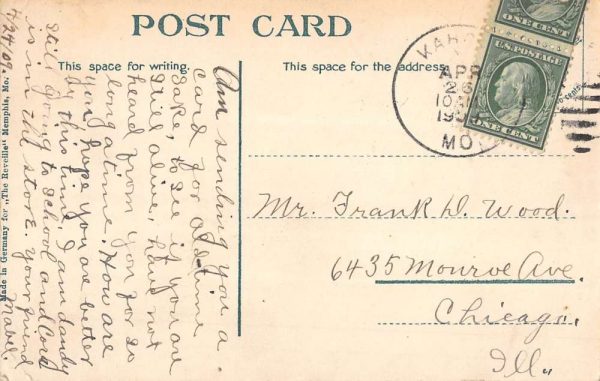 POST CARD
This space for writing.
This space for the address
Am sending you a
card for old time
sake, to see if you are
still alive, have not
heard from you for so
long a time. How are
you, hope you are better
by this time, I am dandy
still going to school and Cord
is in the store. your friend
4/24/09. Mabel.
Mr. Frank D. Wood.
6435 Monroe Ave.
Chicago,
Ill.,
APR
26
10 AM
19
MO.
ONE CENT
U.S. POSTAGE
ONE CENT
Made in Germany for "The Reveille" Memphis, Mo.